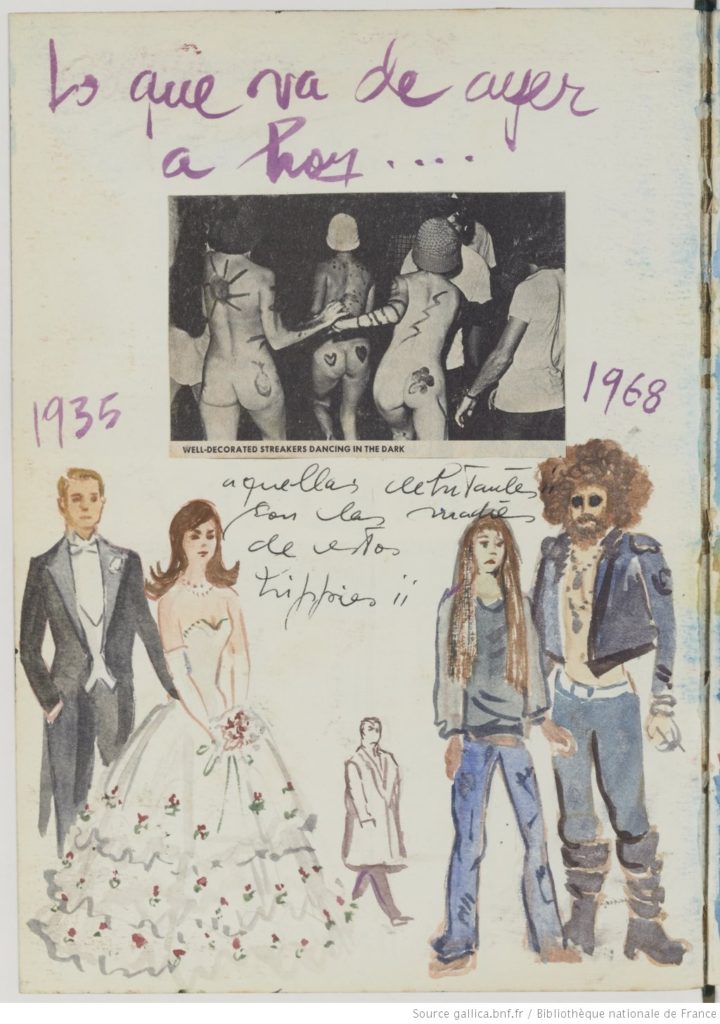 Lo que va de ayer
a hoy....
WELL-DECORATED STREAKERS DANCING IN THE DARK
1935
1968
aquellas debutantes
son las madres
de estos
hippies ¡¡
Source gallica.bnf.fr / Bibliothèque nationale de France